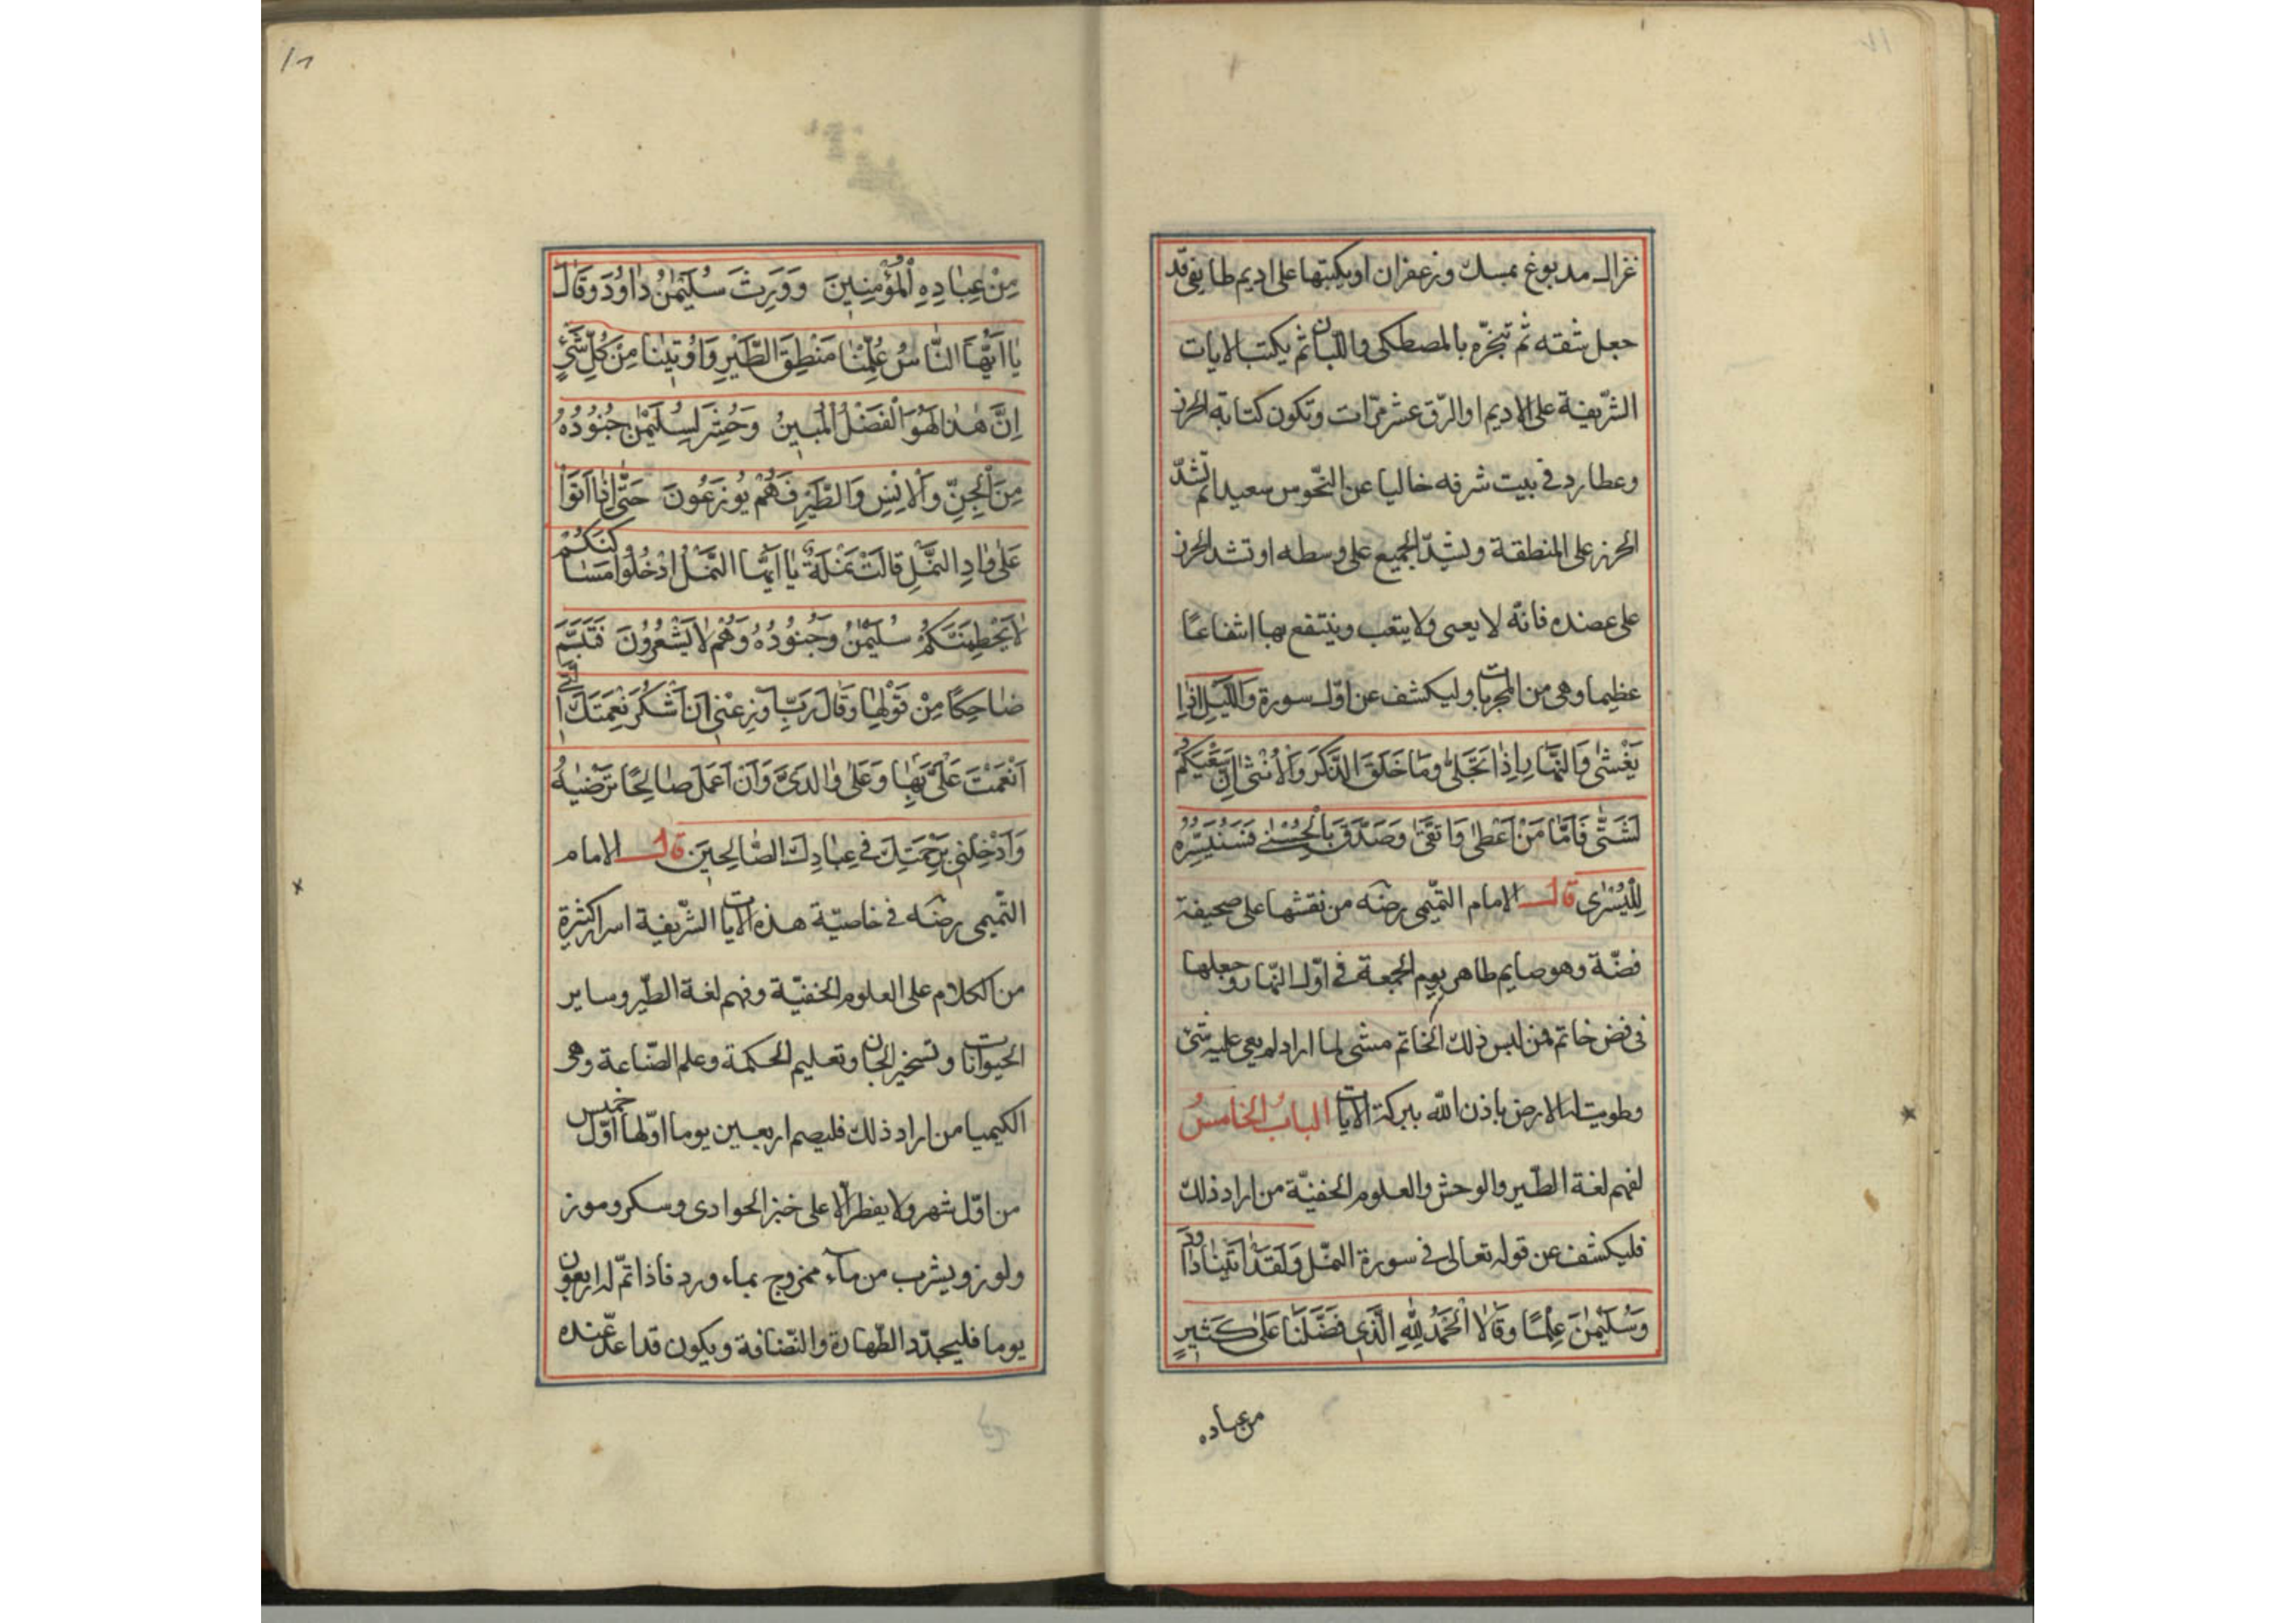 غزال مدبوغ بمسك وزعفران او يكتبها على اديم طايفى قد
جعل شقه ثم تبخّره بالمصطكى واللبان ثم يكتب الايات
الشّريفة على الاديم او الرّق عشر مرّات وتكون كتابة الحرز
وعطارد فى بيت شرفه خاليا عن النّحوس سعيدا ثم تشدّ
الحرز على المنطقة ولشدّ الجميع على وسطه او تشد الحرز
على عضده فانّه لا يعيى ولا يتعب وينتفع بها انتفاعًا
عظيما وهى من المجربات وليكشف عن اوّل سورة وَاللَّيْلِ اِذَا
يَغْشٰى وَالنَّهَارِ اِذَا تَجَلّٰى وَمَا خَلَقَ الذَّكَرَ وَالْاُنْثٰى اِنَّ سَعْيَكُمْ
لَشَتّٰى فَاَمَّا مَنْ اَعْطٰى وَاتَّقٰى وَصَدَّقَ بِالْحُسْنٰى فَسَنُيَسِّرُهُ
لِلْيُسْرٰى قال الامام التّميمى رضه من نقشها على صحيفة
فضّة وهو صايم طاهر يوم الجمعة فى اوّل النّهار وجعلها
فى فص خاتم فمن لبس ذلك الخاتم مشى لما اراد لم يعى عليه شئ
وطويت له الارض باذن الله ببركة الايات الباب الخامس
لفهم لغة الطّير والوحش والعلوم الخفيّة من اراد ذلك
فليكشف عن قوله تعالى فى سورة النّمل وَلَقَدْ اٰتَيْنَا دَاوُدَ
وَسُلَيْمٰنَ عِلْمًا وَقَالَا الْحَمْدُ لِلّٰهِ الَّذِى فَضَّلَنَا عَلٰى كَثِيرٍ
من عباده
١٦
مِنْ عِبَادِهِ الْمُؤْمِنِينَ وَوَرِثَ سُلَيْمٰنُ دَاوُدَ وَقَالَ
يَا اَيُّهَا النَّاسُ عُلِّمْنَا مَنْطِقَ الطَّيْرِ وَاُوتِينَا مِنْ كُلِّ شَىْءٍ
اِنَّ هٰذَا لَهُوَ الْفَضْلُ الْمُبِينُ وَحُشِرَ لِسُلَيْمٰنَ جُنُودُهُ
مِنَ الْجِنِّ وَالْاِنْسِ وَالطَّيْرِ فَهُمْ يُوزَعُونَ حَتّٰى اِذَا اَتَوْا
عَلٰى وَادِ النَّمْلِ قَالَتْ نَمْلَةٌ يَا اَيُّهَا النَّمْلُ ادْخُلُوا مَسَاكِنَكُمْ
لَا يَحْطِمَنَّكُمْ سُلَيْمٰنُ وَجُنُودُهُ وَهُمْ لَا يَشْعُرُونَ فَتَبَسَّمَ
ضَاحِكًا مِنْ قَوْلِهَا وَقَالَ رَبِّ اَوْزِعْنِى اَنْ اَشْكُرَ نِعْمَتَكَ الَّتِى
اَنْعَمْتَ عَلَىَّ بِهَا وَعَلٰى وَالِدَىَّ وَاَنْ اَعْمَلَ صَالِحًا تَرْضٰيهُ
وَاَدْخِلْنِى بِرَحْمَتِكَ فِى عِبَادِكَ الصَّالِحِينَ قال الامام
التّميمى رضه فى خاصيّة هذه الايات الشّريفة اسرار كثيرة
من الكلام على العلوم الخفيّة وفهم لغة الطّير وساير
الحيوانات وتسخير الجان وتعليم الحكمة وعلم الصّناعة وهى
الكيميا من اراد ذلك فليصم اربعين يوما اوّلها اوّل خميس
من اوّل شهر ولا يفطر الّا على خبز الحوادى وسكر وموز
ولوز ويشرب من ماء ممزوج بماء ورد فاذا تمّ له اربعون
يوما فليجدّد الطّهارة والنّضافة ويكون قد اعدّ عنده